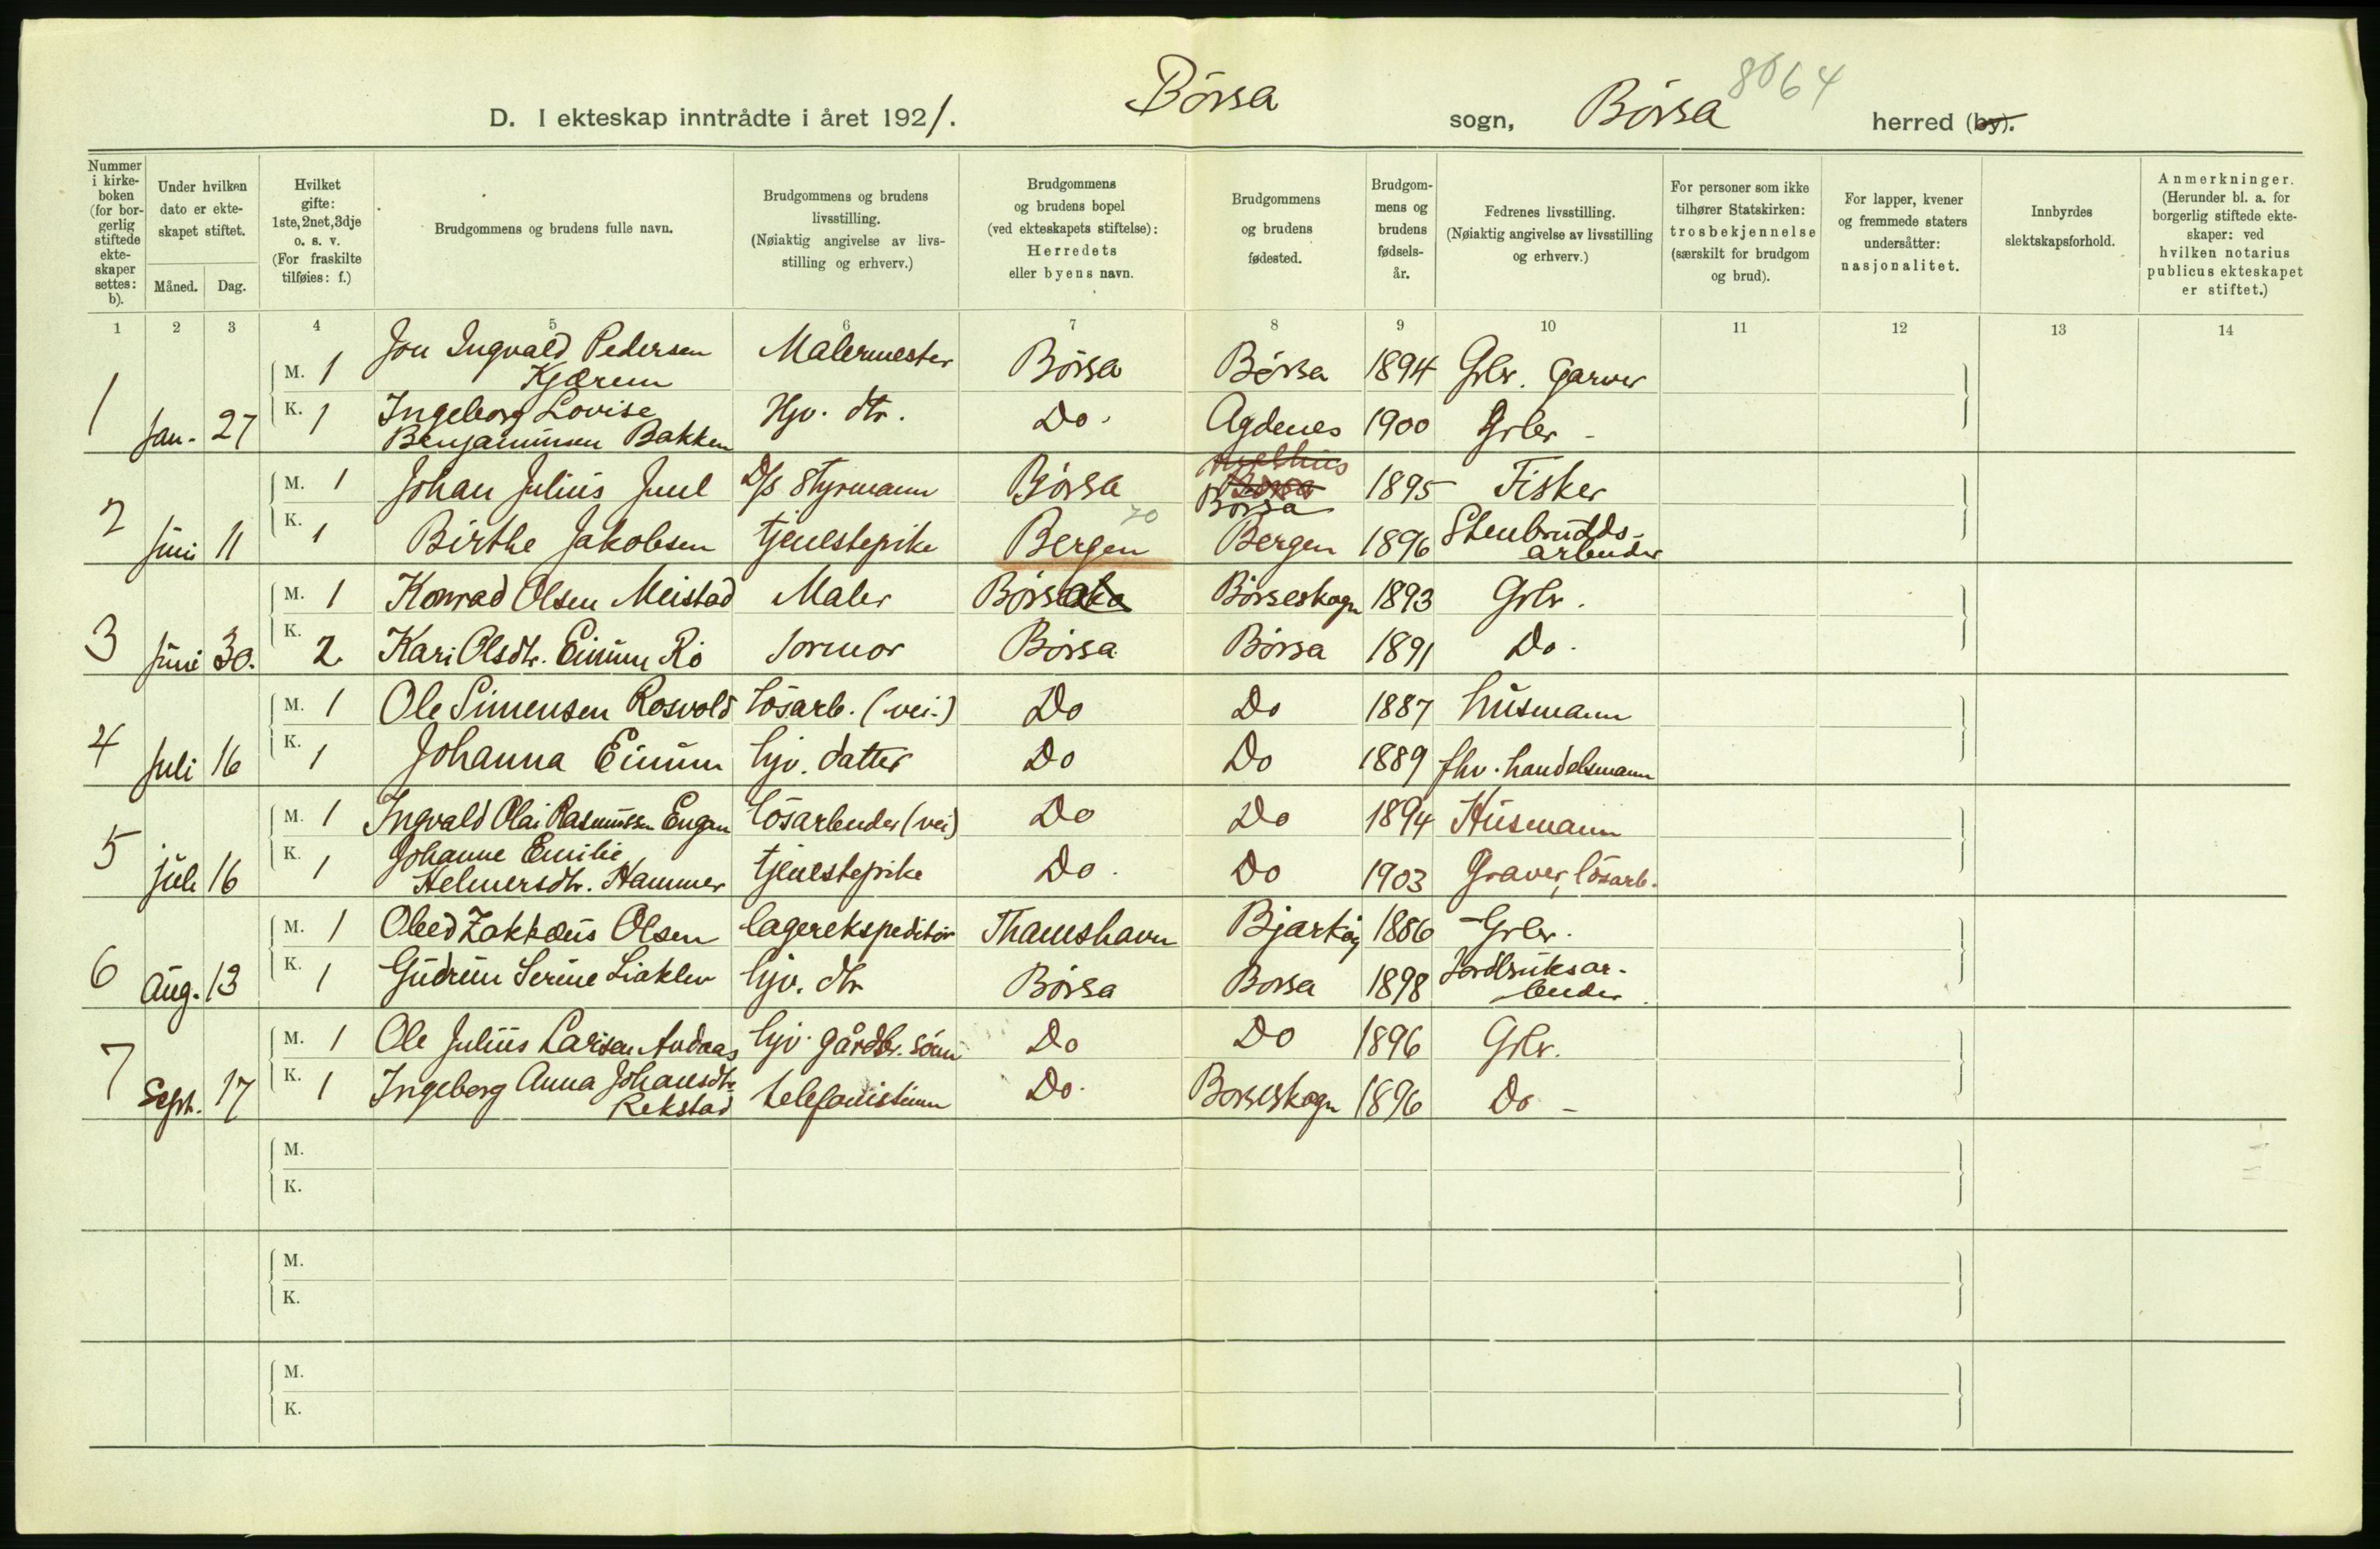 8064
D. I ekteskap inntrådte i året 1921. Børsa sogn, Børsa herred (by).
Nummer i kirkeboken (for borgerlig stiftede ekteskaper settes: b).
Under hvilken dato er ekteskapet stiftet.
Måned. Dag.
Hvilket gifte: 1ste, 2net, 3dje o. s. v. (For fraskilte tilføies: f.)
Brudgommens og brudens fulle navn.
Brudgommens og brudens livsstilling. (Nøiaktig angivelse av livsstilling og erhverv.)
Brudgommens og brudens bopel (ved ekteskapets stiftelse): Herredets eller byens navn.
Brudgommens og brudens fødested.
Brudgommens og brudens fødselsår.
Fedrenes livsstilling. (Nøiaktig angivelse av livsstilling og erhverv.)
For personer som ikke tilhører Statskirken: trosbekjennelse (særskilt for brudgom og brud).
For lapper, kvener og fremmede staters undersåtter: nasjonalitet.
Innbyrdes slektskapsforhold.
Anmerkninger. (Herunder bl. a. for borgerlig stiftede ekteskaper: ved hvilken notarius publicus ekteskapet er stiftet.)
1 2 3 4 5 6 7 8 9 10 11 12 13 14
M. 1 Jon Ingvald Pedersen Kjærem Malermester Børsa Børsa 1894 Gbr. Garver
1 Jan. 27 K. 1 Ingeborg Lovise Benjaminsen Bakken Hjv. dtr. Do. Agdenes 1900 Gbr -
M. 1 Johan Julius Juul D/s Styrmann Børsa Børsa 1895 Fisker
2 Juni 11 K. 1 Birthe Jakobsen tjenestepike Bergen 70 Bergen 1896 Stenbrudds-arbeider
M. 1 Konrad Olsen Meistad Maler Børsa Børseskogn 1893 Gbr.
3 Juni 30. K. 2 Kari Olsdtr. Einum Rø Jormor Børsa Børsa 1891 Do.
M. 1 Ole Simensen Rosvold løsarb. (vei.) Do Do 1887 husmann
4 Juli 16 K. 1 Johanna Einum hjv. datter Do Do 1889 fhv. handelsmann
M. 1 Ingvald Olai Rasmussen Engan løsarbeider (vei) Do Do 1894 Husmann
5 juli 16 K. 1 Johanne Emilie Helmersdtr. Hammer tjenestepike Do. Do 1903 Graver, løsarb.
M. 1 Obed Zakkæus Olsen lagerekspeditør Thamshavn Bjarkøy 1886 Gbr.
6 Aug. 13 K. 1 Gudrun Serine Liaklev hjv. dtr Børsa Børsa 1898 Jordbruksar-beider
M. 1 Ole Julius Larsen Andaas hjv. gårdbr. sønn Do Do 1896 Gbr.
7 Sept. 17 K. 1 Ingeborg Anna Johansdtr. Rekstad telefonistinne Do. Børseskogn 1896 Do -
M.
K.
M.
K.
M.
K.